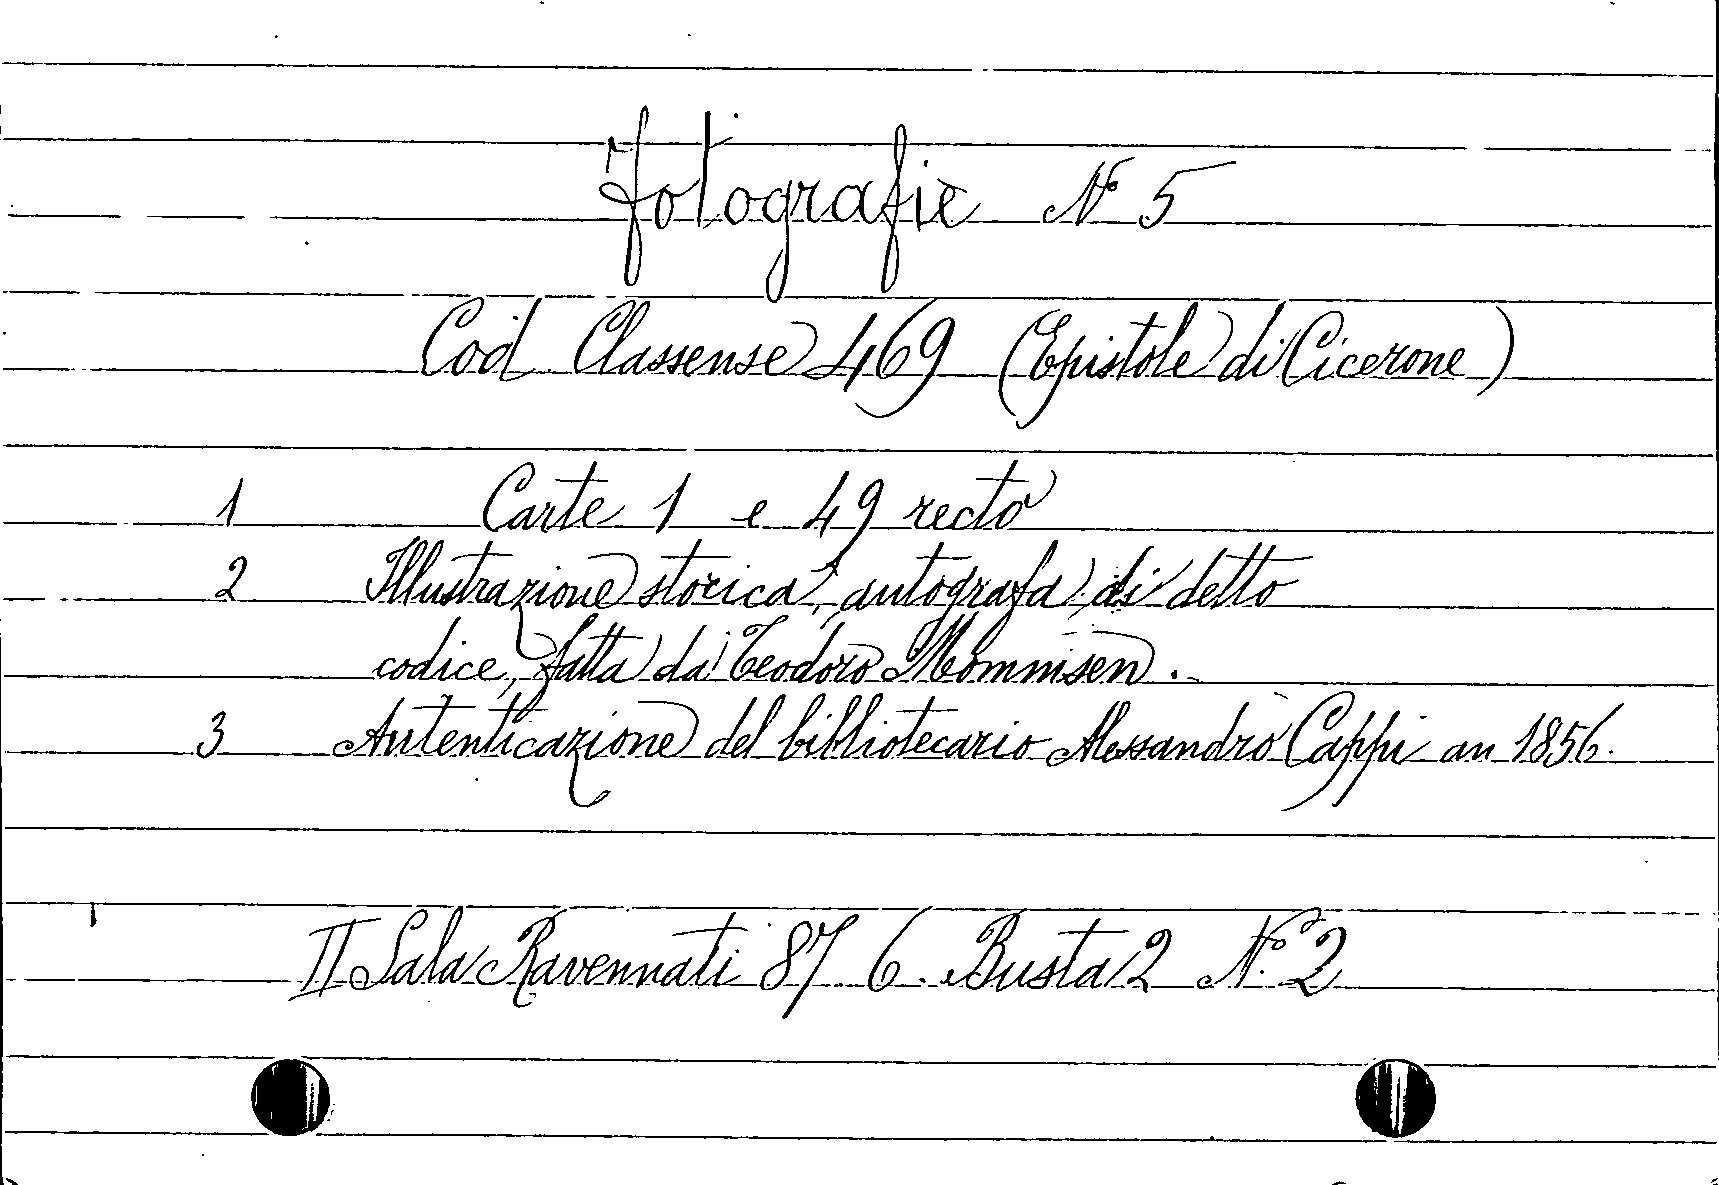 Fotografie N° 5
Cod Classense 469 (Epistole di Cicerone)
1 Carte 1 e 49 recto
2 Illustrazione storica, autografa di detto
codice, fatta da Teodoro Mommsen.
3 Autenticazione del bibliotecario Alessandro Cappi an 1856.
II Sala Ravennati 87 6. Busta 2 N.° 2